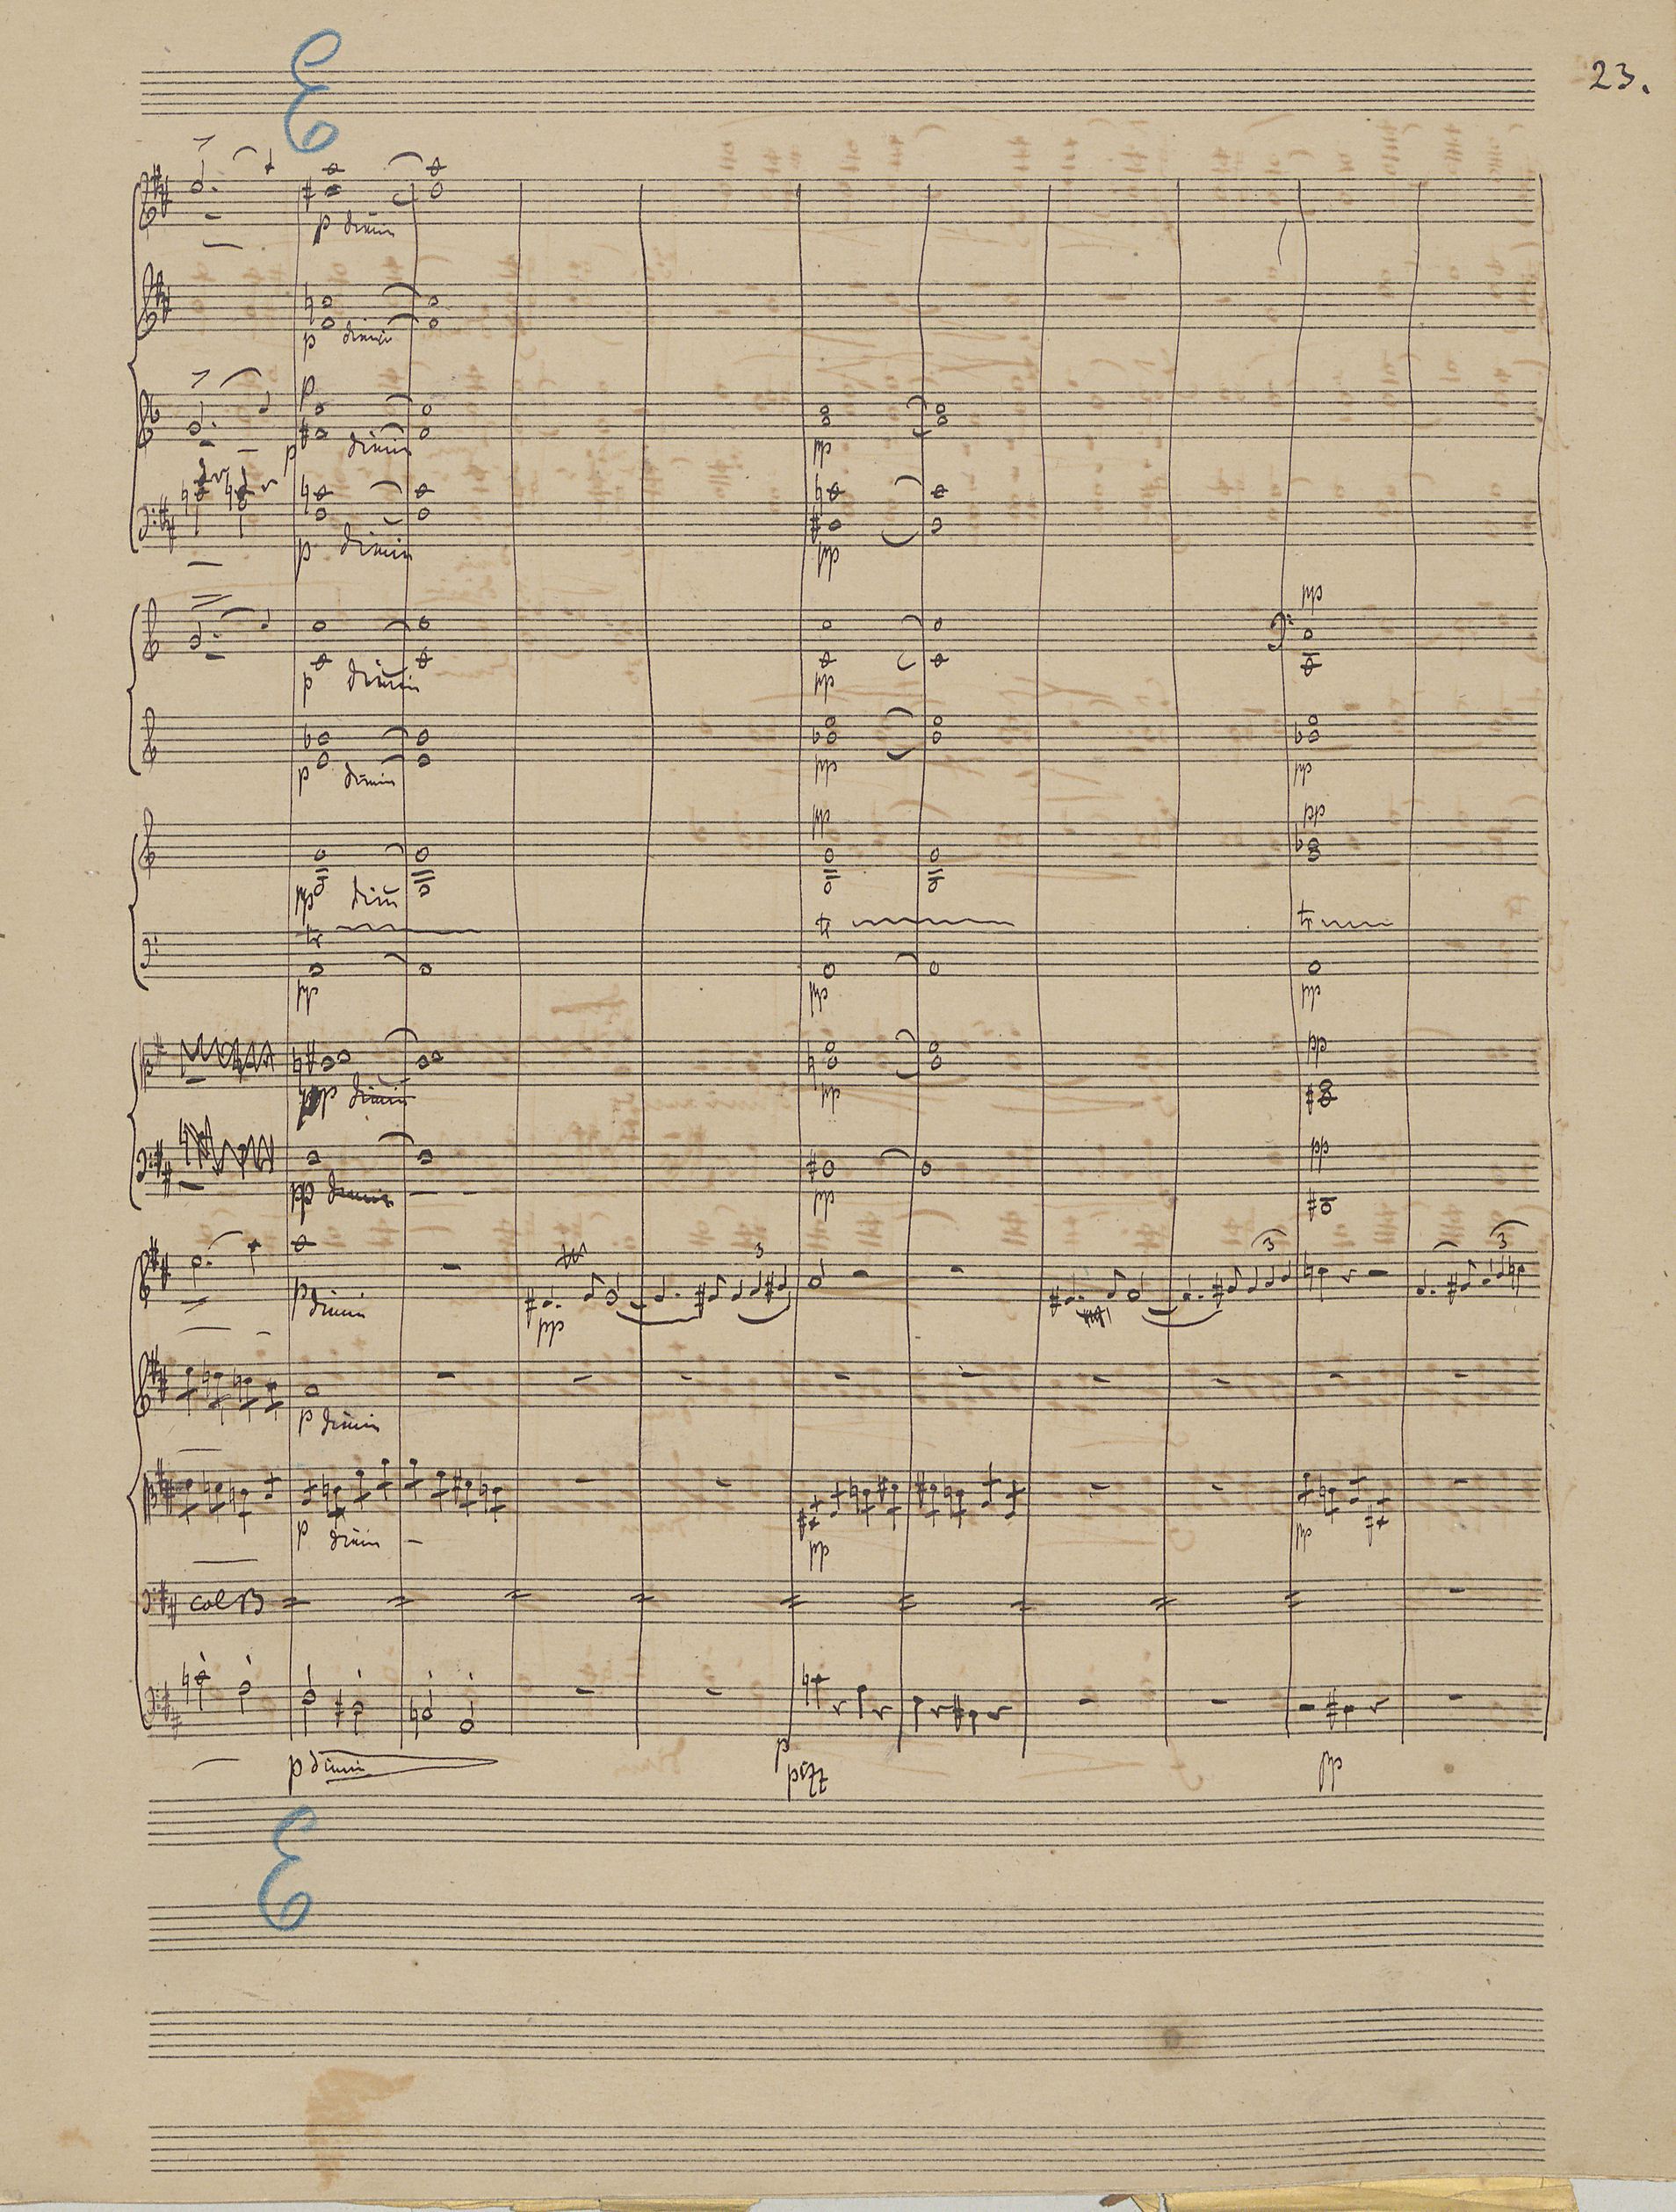 E
23.
p dimin
p dimin
p
p dimin
pp
p dimin
pp
pp
p dimin
pp
p dimin
pp
pp
pp
pp
pp dim
tr
tr
tr
pp
pp
pp
pp
pp dimin
pp
pp
pp dimin
pp
3
3
3
p dimin
pp
p dimin
p dimin
pp
pp
col B
p dimin
p
pizz
pp
E